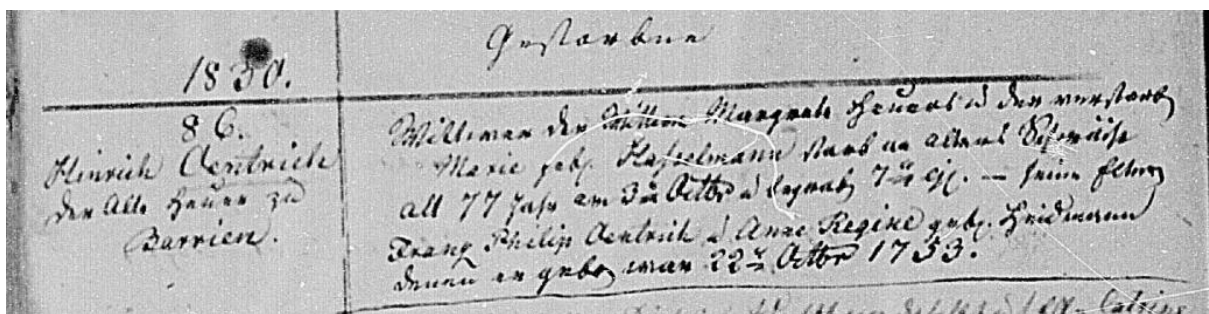 Gestorbne
1830.
86.
Hinrich Oentrich
der Alte Heuer zu
Barrien.
Wittwer der Margrete Heuers u der verstorb
Marie geb. Hasselmann starb an Alters Schwäche
alt 77 Jahr am 3ten Octbr u begrab 7ten ej. — seine Eltern
Franz Philip Oentrich u Anne Regine geb. Heidmann
denen er gebo war 22te Octbr 1753.